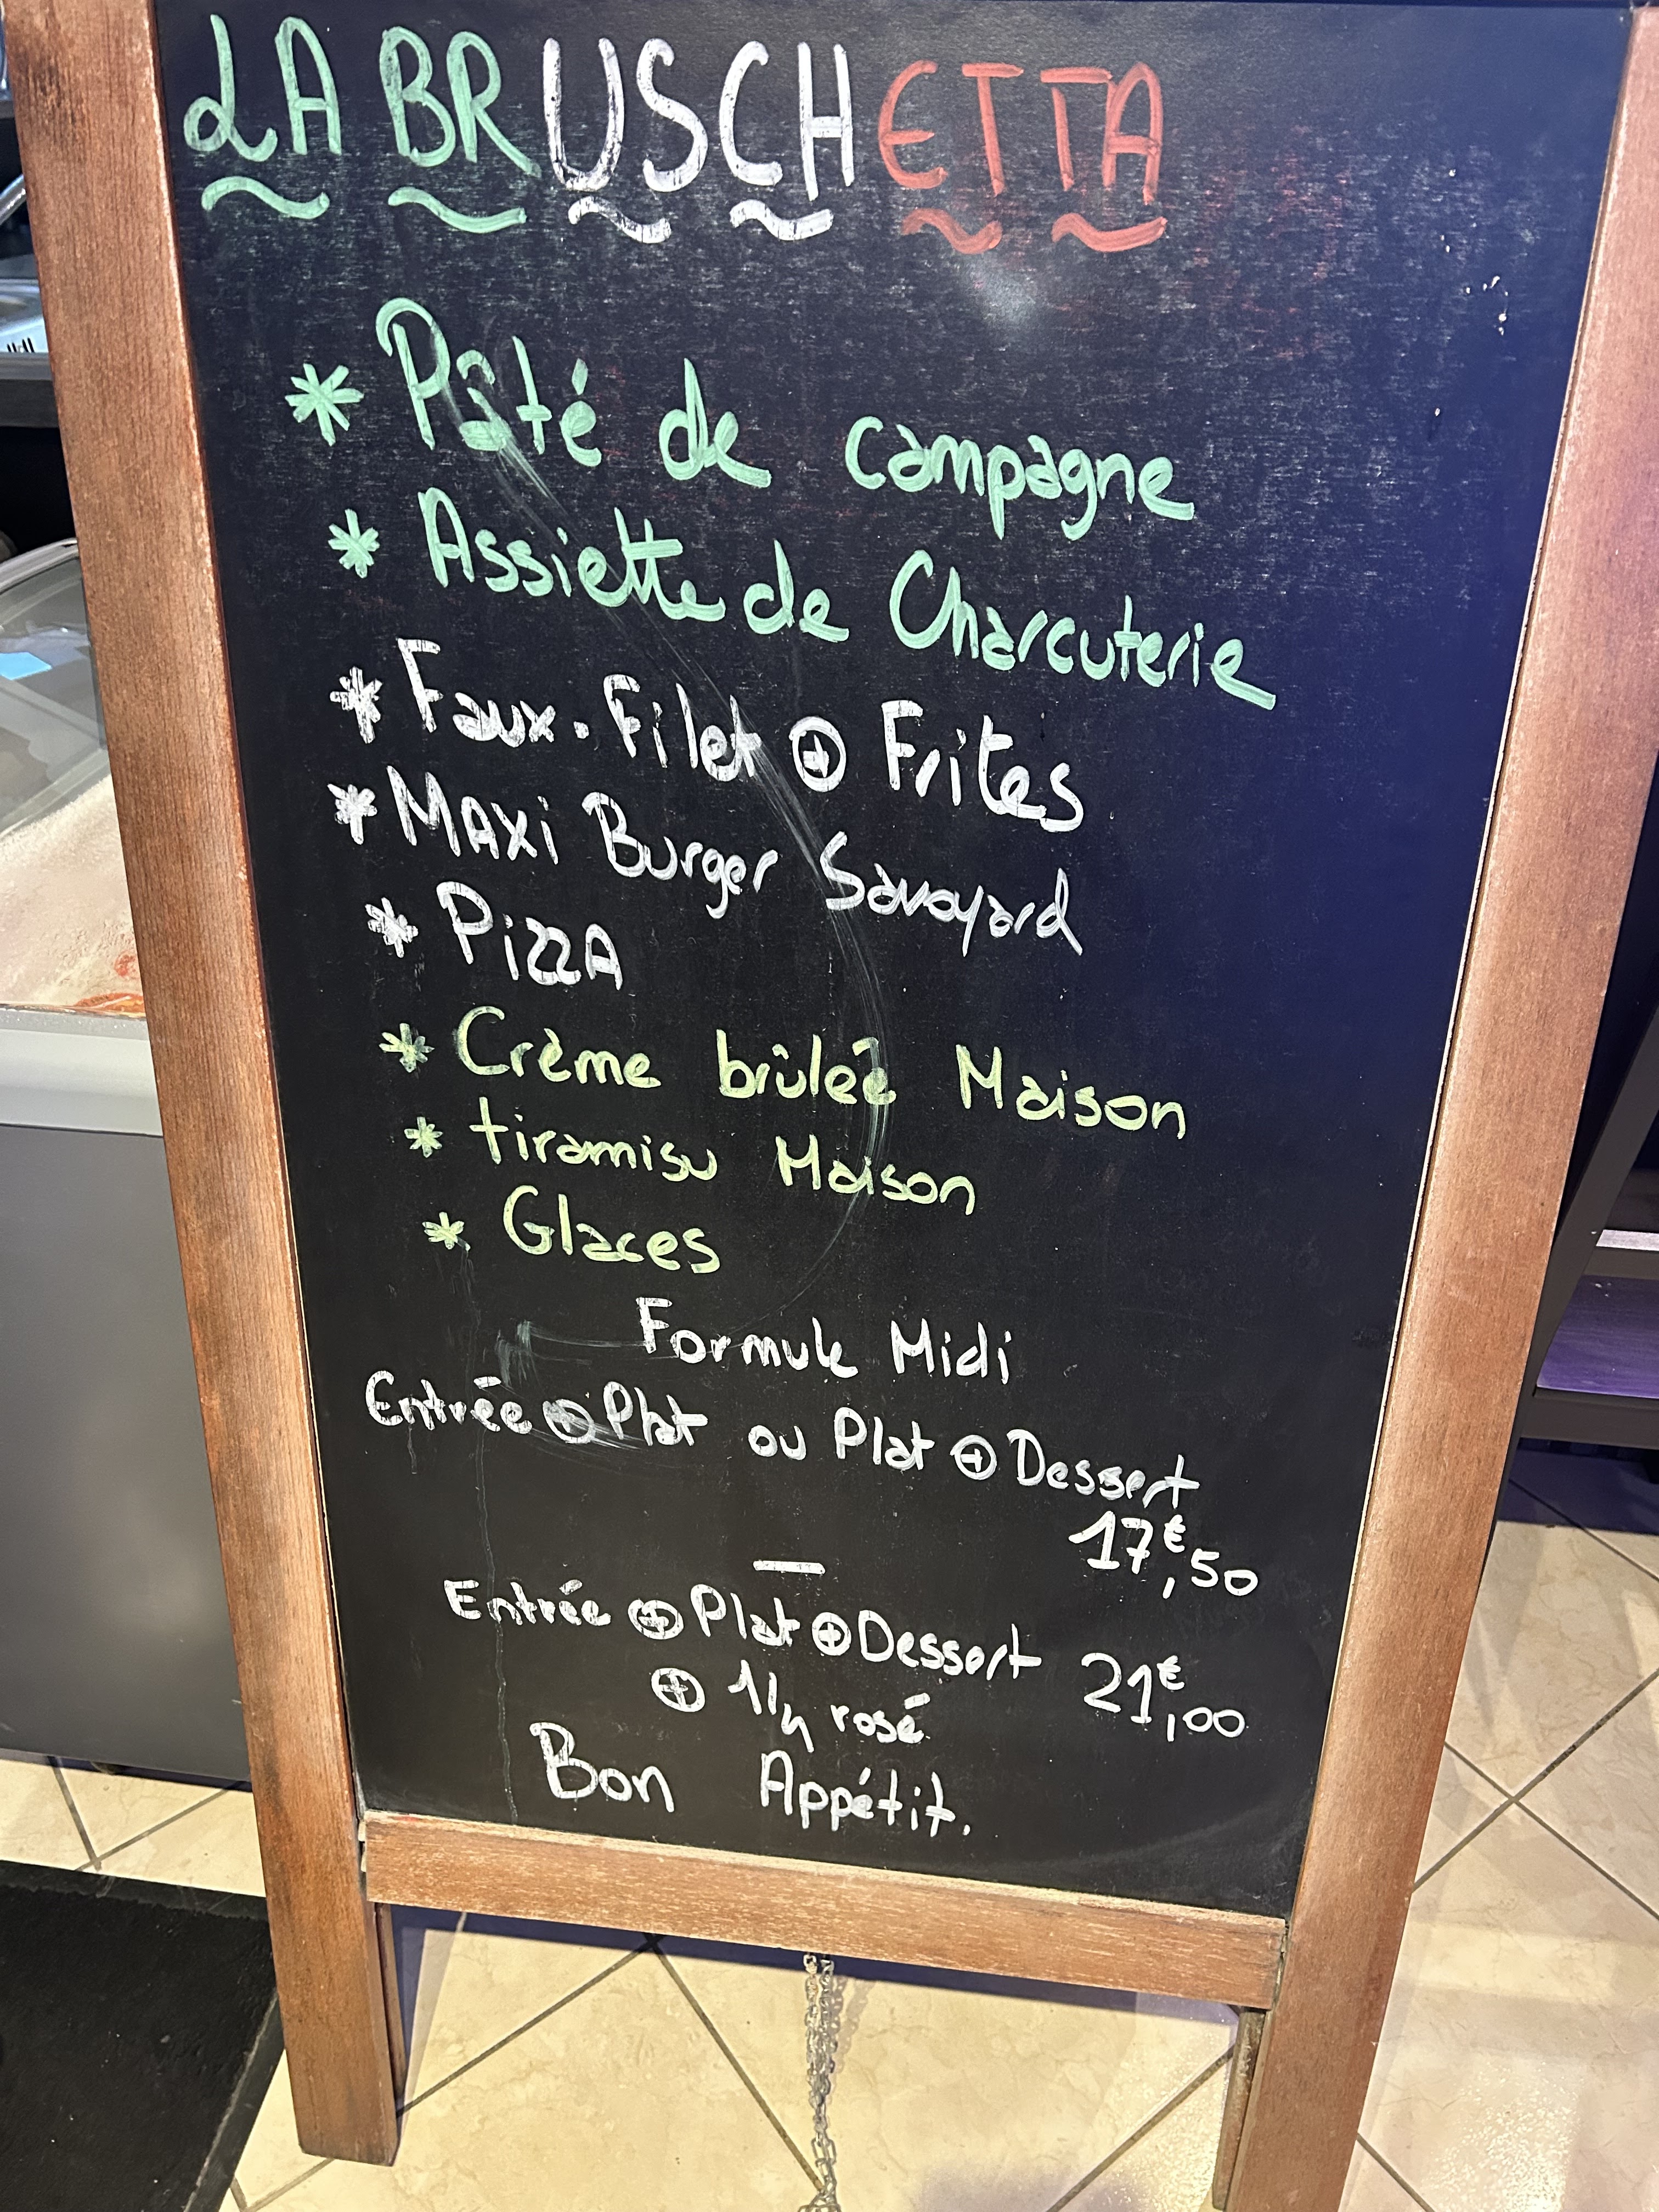 LA BRUSCHETTA
* Pâté de campagne
* Assiette de Charcuterie
* Faux-Filet + Frites
* MAXi Burger Savoyard
* PizzA
* Crème brûlée Maison
* tiramisu Maison
* Glaces
Formule Midi
Entrée + Plat ou Plat + Dessert
17€,50
—
Entrée + Plat + Dessert 21€,00
+ 1/4 rosé
Bon Appétit.